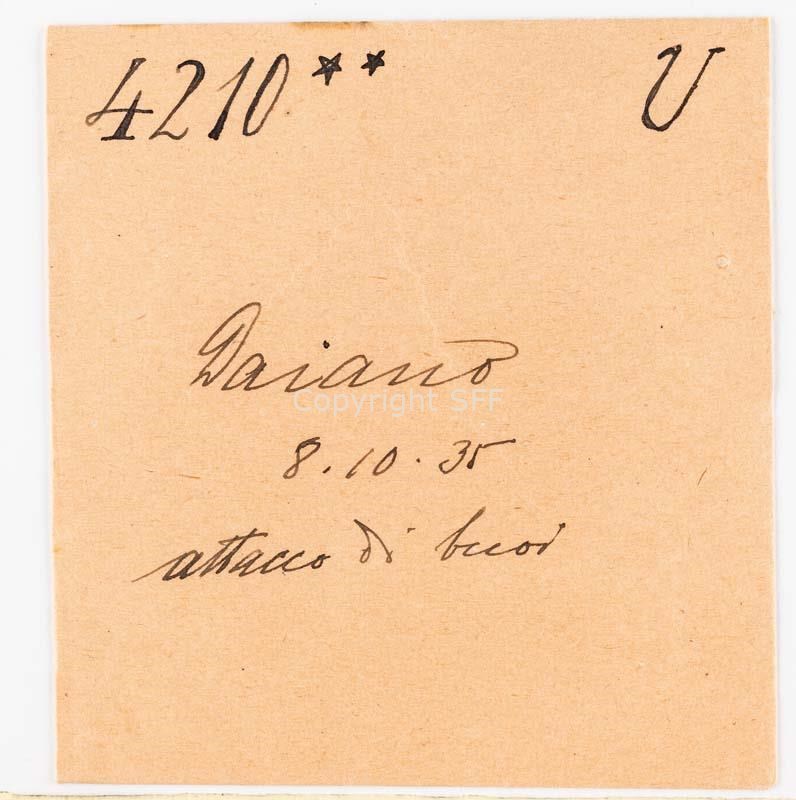 4210** U
Daiano
Copyright SFF
8.10.35
attacco di buoi